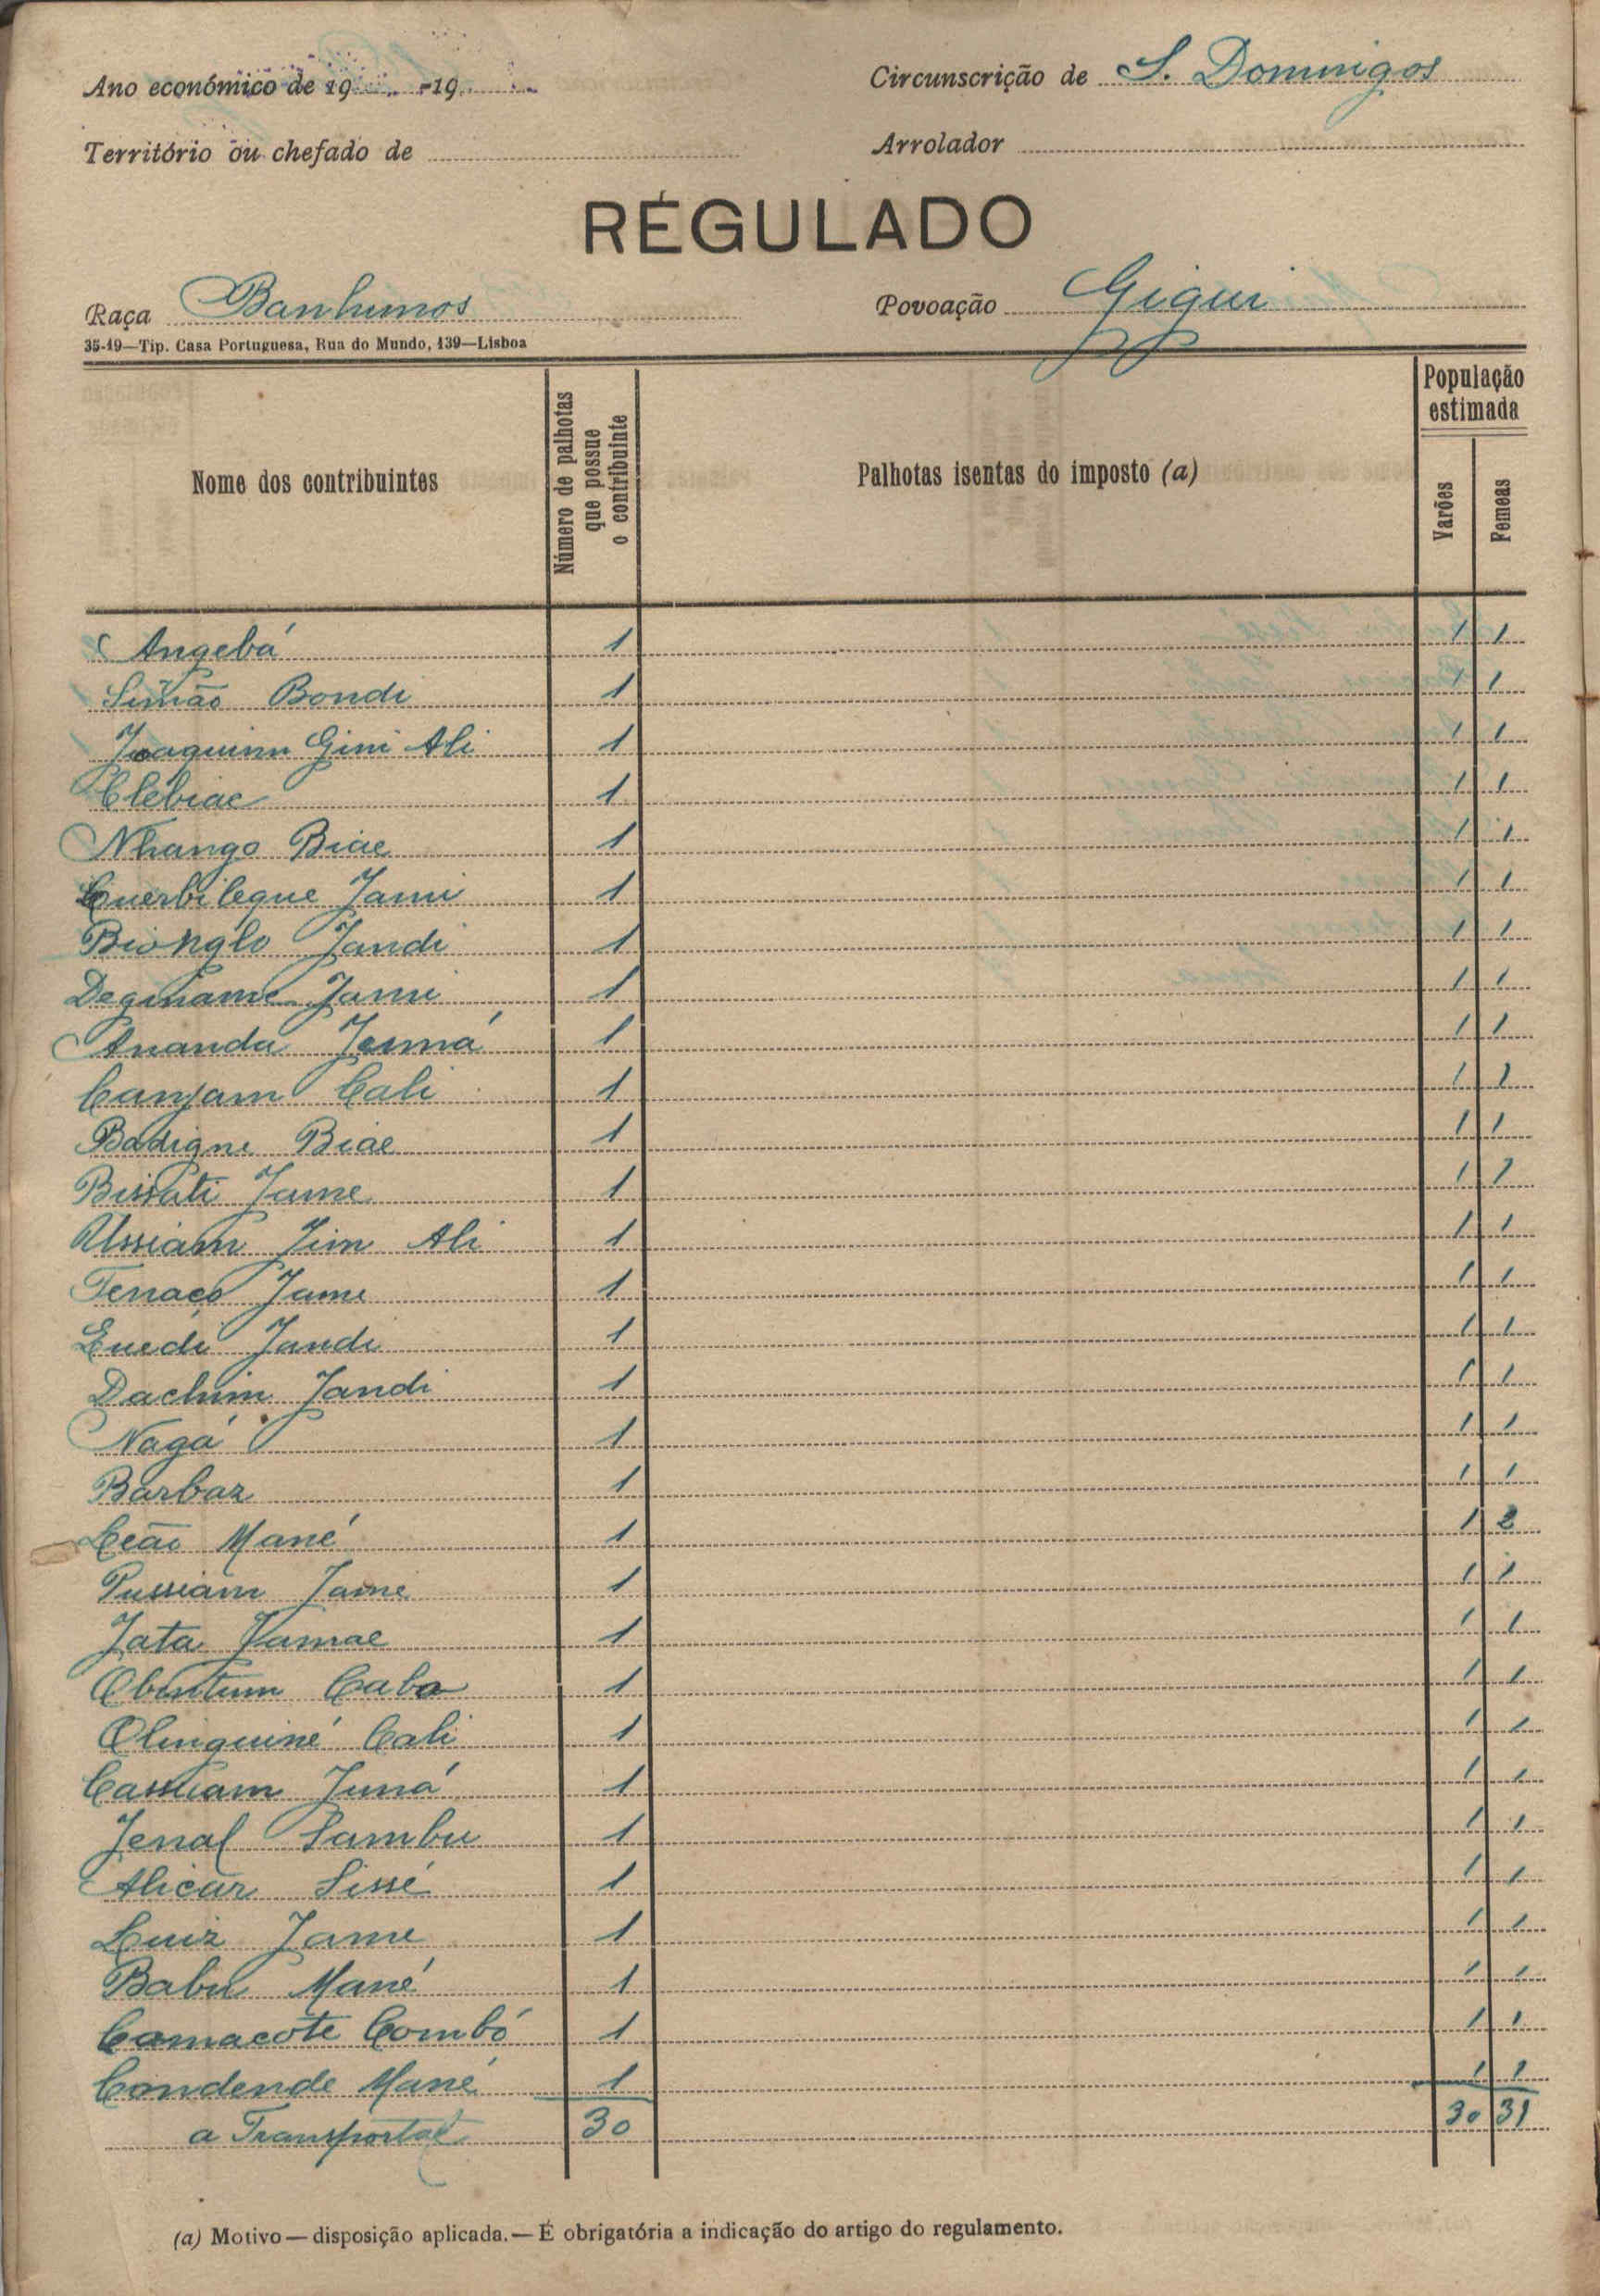 Ano económico de 19 -19
Circunscrição de S. Domingos
Território ou chefado de
Arrolador
RÉGULADO
Raça Banhunos
Povoação Gigui
35-19—Tip. Casa Portuguesa, Rua do Mundo, 139—Lisboa
Nome dos contribuintes
Número de palhotas que possue o contribuinte
Palhotas isentas do imposto (a)
População estimada
Varões
Femeas
Angebá 1 1 1
Simão Bondi 1 1 1
Joaquim Gini Ali 1 1 1
Clebiac 1 1 1
Nhango Biae 1 1 1
Cuerbilegue Jami 1 1 1
Bionglo Jandi 1 1 1
Deginame Jami 1 1 1
Ananda Jemá 1 1 1
Canjam Cali 1 1 1
Badigni Biae 1 1 1
Bissati Jame 1 1 1
Ussiam Jim Ali 1 1 1
Tenaco Jame 1 1 1
Luedi Jandi 1 1 1
Dachim Jandi 1 1 1
Nagá 1 1 1
Barbaz 1 1 1
Leão Mané 1 1 2
Pussiam Jame 1 1 1
Jata Jamae 1 1 1
Obintum Cabo 1 1 1
Olinguiné Cali 1 1 1
Cassiam Juná 1 1 1
Jenal Sambu 1 1 1
Alicar Sissé 1 1 1
Luiz Jame 1 1 1
Babu Mané 1 1 1
Camacote Combó 1 1 1
Condende Mané 1 1 1
a Transportar 30 30 31
(a) Motivo — disposição aplicada. — É obrigatória a indicação do artigo do regulamento.